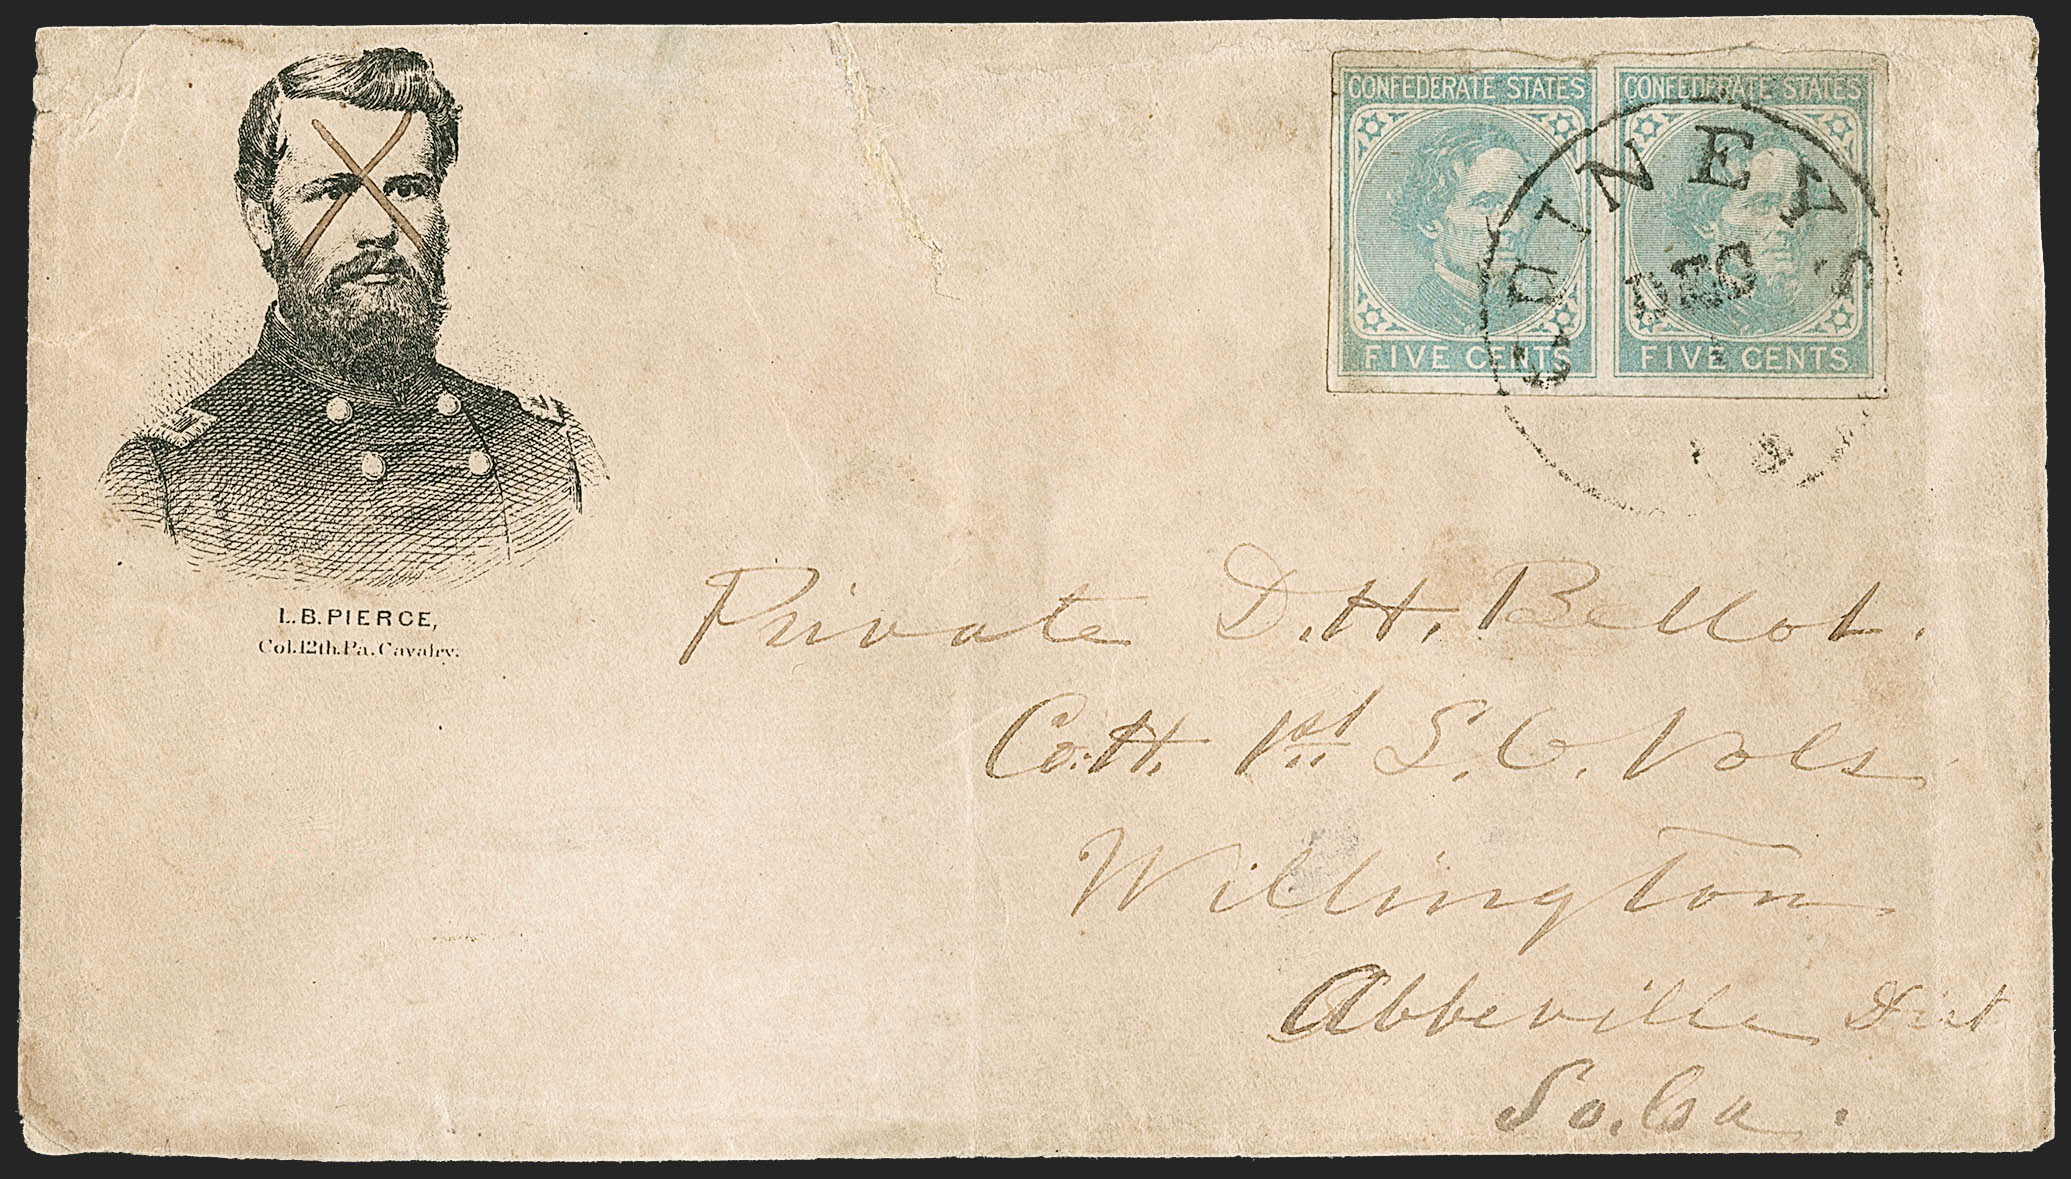 CONFEDERATE STATES CONFEDERATE STATES
FIVE CENTS FIVE CENTS
GUINEYS
DEC
L. B. PIERCE,
Col. 12th. Pa. Cavalry.
Private D. H. Bellot.
Co. H. 1st S. C. Vols
Willington
Abbeville Dist
So. Ca.